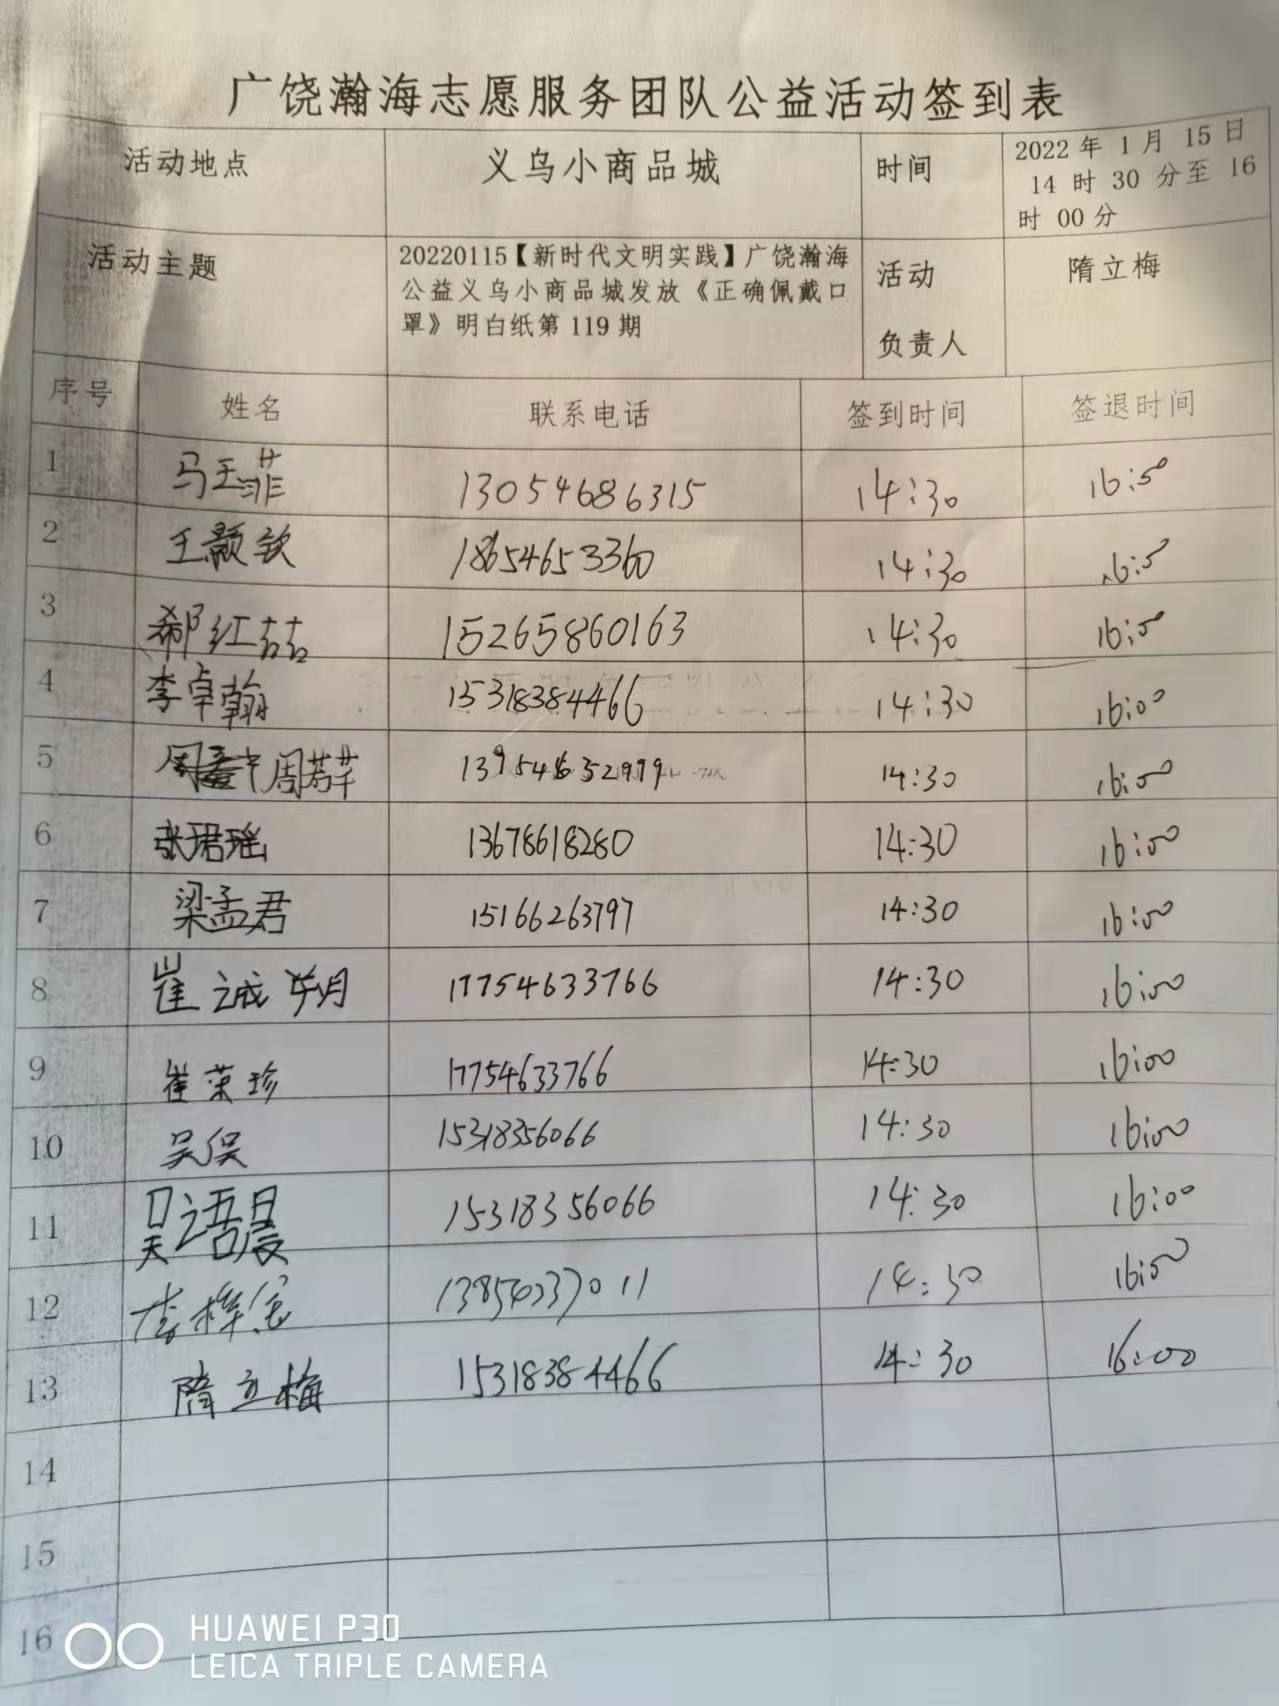 广饶瀚海志愿服务团队公益活动签到表
活动地点 义乌小商品城 时间 2022 年 1 月 15 日
14 时 30 分至 16
时 00 分
活动主题 20220115【新时代文明实践】广饶瀚海 活动 隋立梅
公益义乌小商品城发放《正确佩戴口
罩》明白纸第 119 期 负责人
序号 姓名 联系电话 签到时间 签退时间
1 马玉菲 13054686315 14:30 16:00
2 王颢钦 18654653360 14:30 16:00
3 郗红喆 15265860163 14:30 16:00
4 李卓翰 15318384466 14:30 16:00
5 周若芊 14:30 16:00
6 张珺瑶 13678618280 14:30 16:00
7 梁孟君 15166263797 14:30 16:00
8 崔诚 17754633766 14:30 16:00
9 崔荣珍 17754633766 14:30 16:00
10 吴俣 15318356066 14:30 16:00
11 吴语晨 15318356066 14:30 16:00
12 李梓 14:30 16:00
13 隋立梅 15318384466 14:30 16:00
14
15
16
HUAWEI P30
LEICA TRIPLE CAMERA